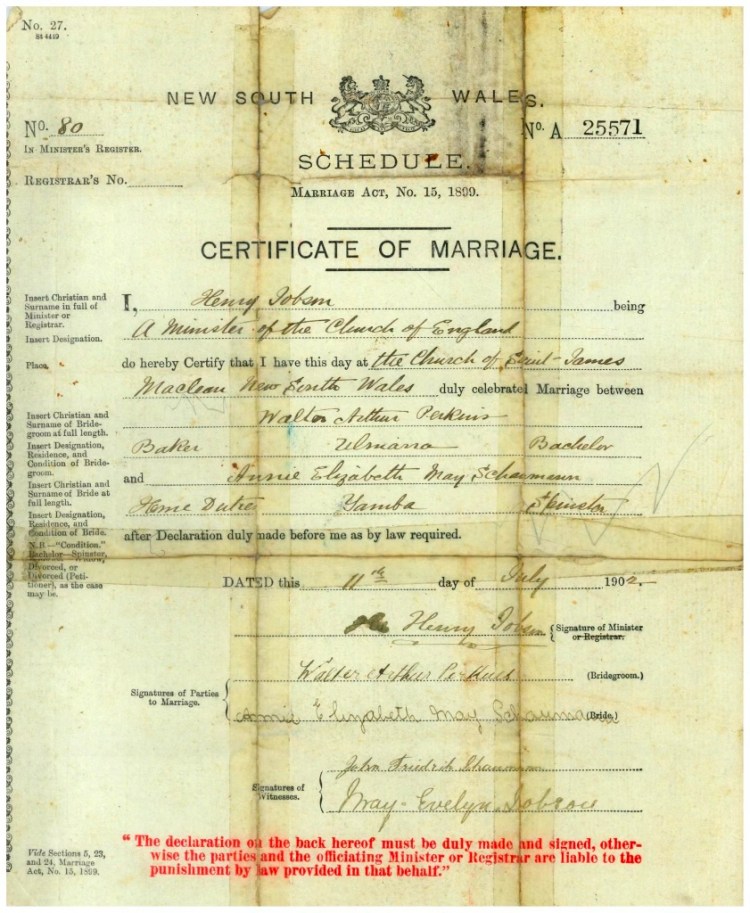 No. 27.
NEW SOUTH WALES.
No. 80
No. A 25571
IN MINISTER'S REGISTER.
SCHEDULE.
REGISTRAR'S No.
MARRIAGE ACT, No. 15, 1899.
CERTIFICATE OF MARRIAGE.
Insert Christian and
Surname in full of
Minister or
Registrar.
I, Henry Jobson being
Insert Designation.
A Minister of the Church of England
Place.
do hereby Certify that I have this day at the Church of Saint James
Maclean New South Wales duly celebrated Marriage between
Insert Christian and
Surname of Bride-
groom at full length.
Walter Arthur Perkins
Insert Designation,
Residence, and
Condition of Bride-
groom.
Baker Ulmarra Bachelor
Insert Christian and
Surname of Bride at
full length.
and Annie Elizabeth May Schaumann
Insert Designation,
Residence, and
Condition of Bride.
Home Duties Yamba Spinster
after Declaration duly made before me as by law required.
N.B.—"Condition,"
Bachelor—Spinster,
Divorced, or
Divorced (Peti-
tioner), as the case
may be.
DATED this 11th day of July 1902
Henry Jobson
Signature of Minister
or Registrar.
Walter Arthur Perkins (Bridegroom.)
Signatures of Parties
to Marriage.
Annie Elizabeth May Schaumann (Bride.)
John Friedrich Schaumann
Signatures of
Witnesses.
May Evelyn Jobson
Vide Sections 5, 23,
and 24, Marriage
Act, No. 15, 1899.
"The declaration on the back hereof must be duly made and signed, other-
wise the parties and the officiating Minister or Registrar are liable to the
punishment by law provided in that behalf."